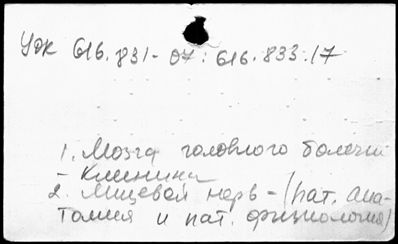 УДК 616.831-07:616.833.17
1. Мозга головного болезни
- клиника
2. Лицевой нерв - (пат. ана-
томия и пат. физиология)